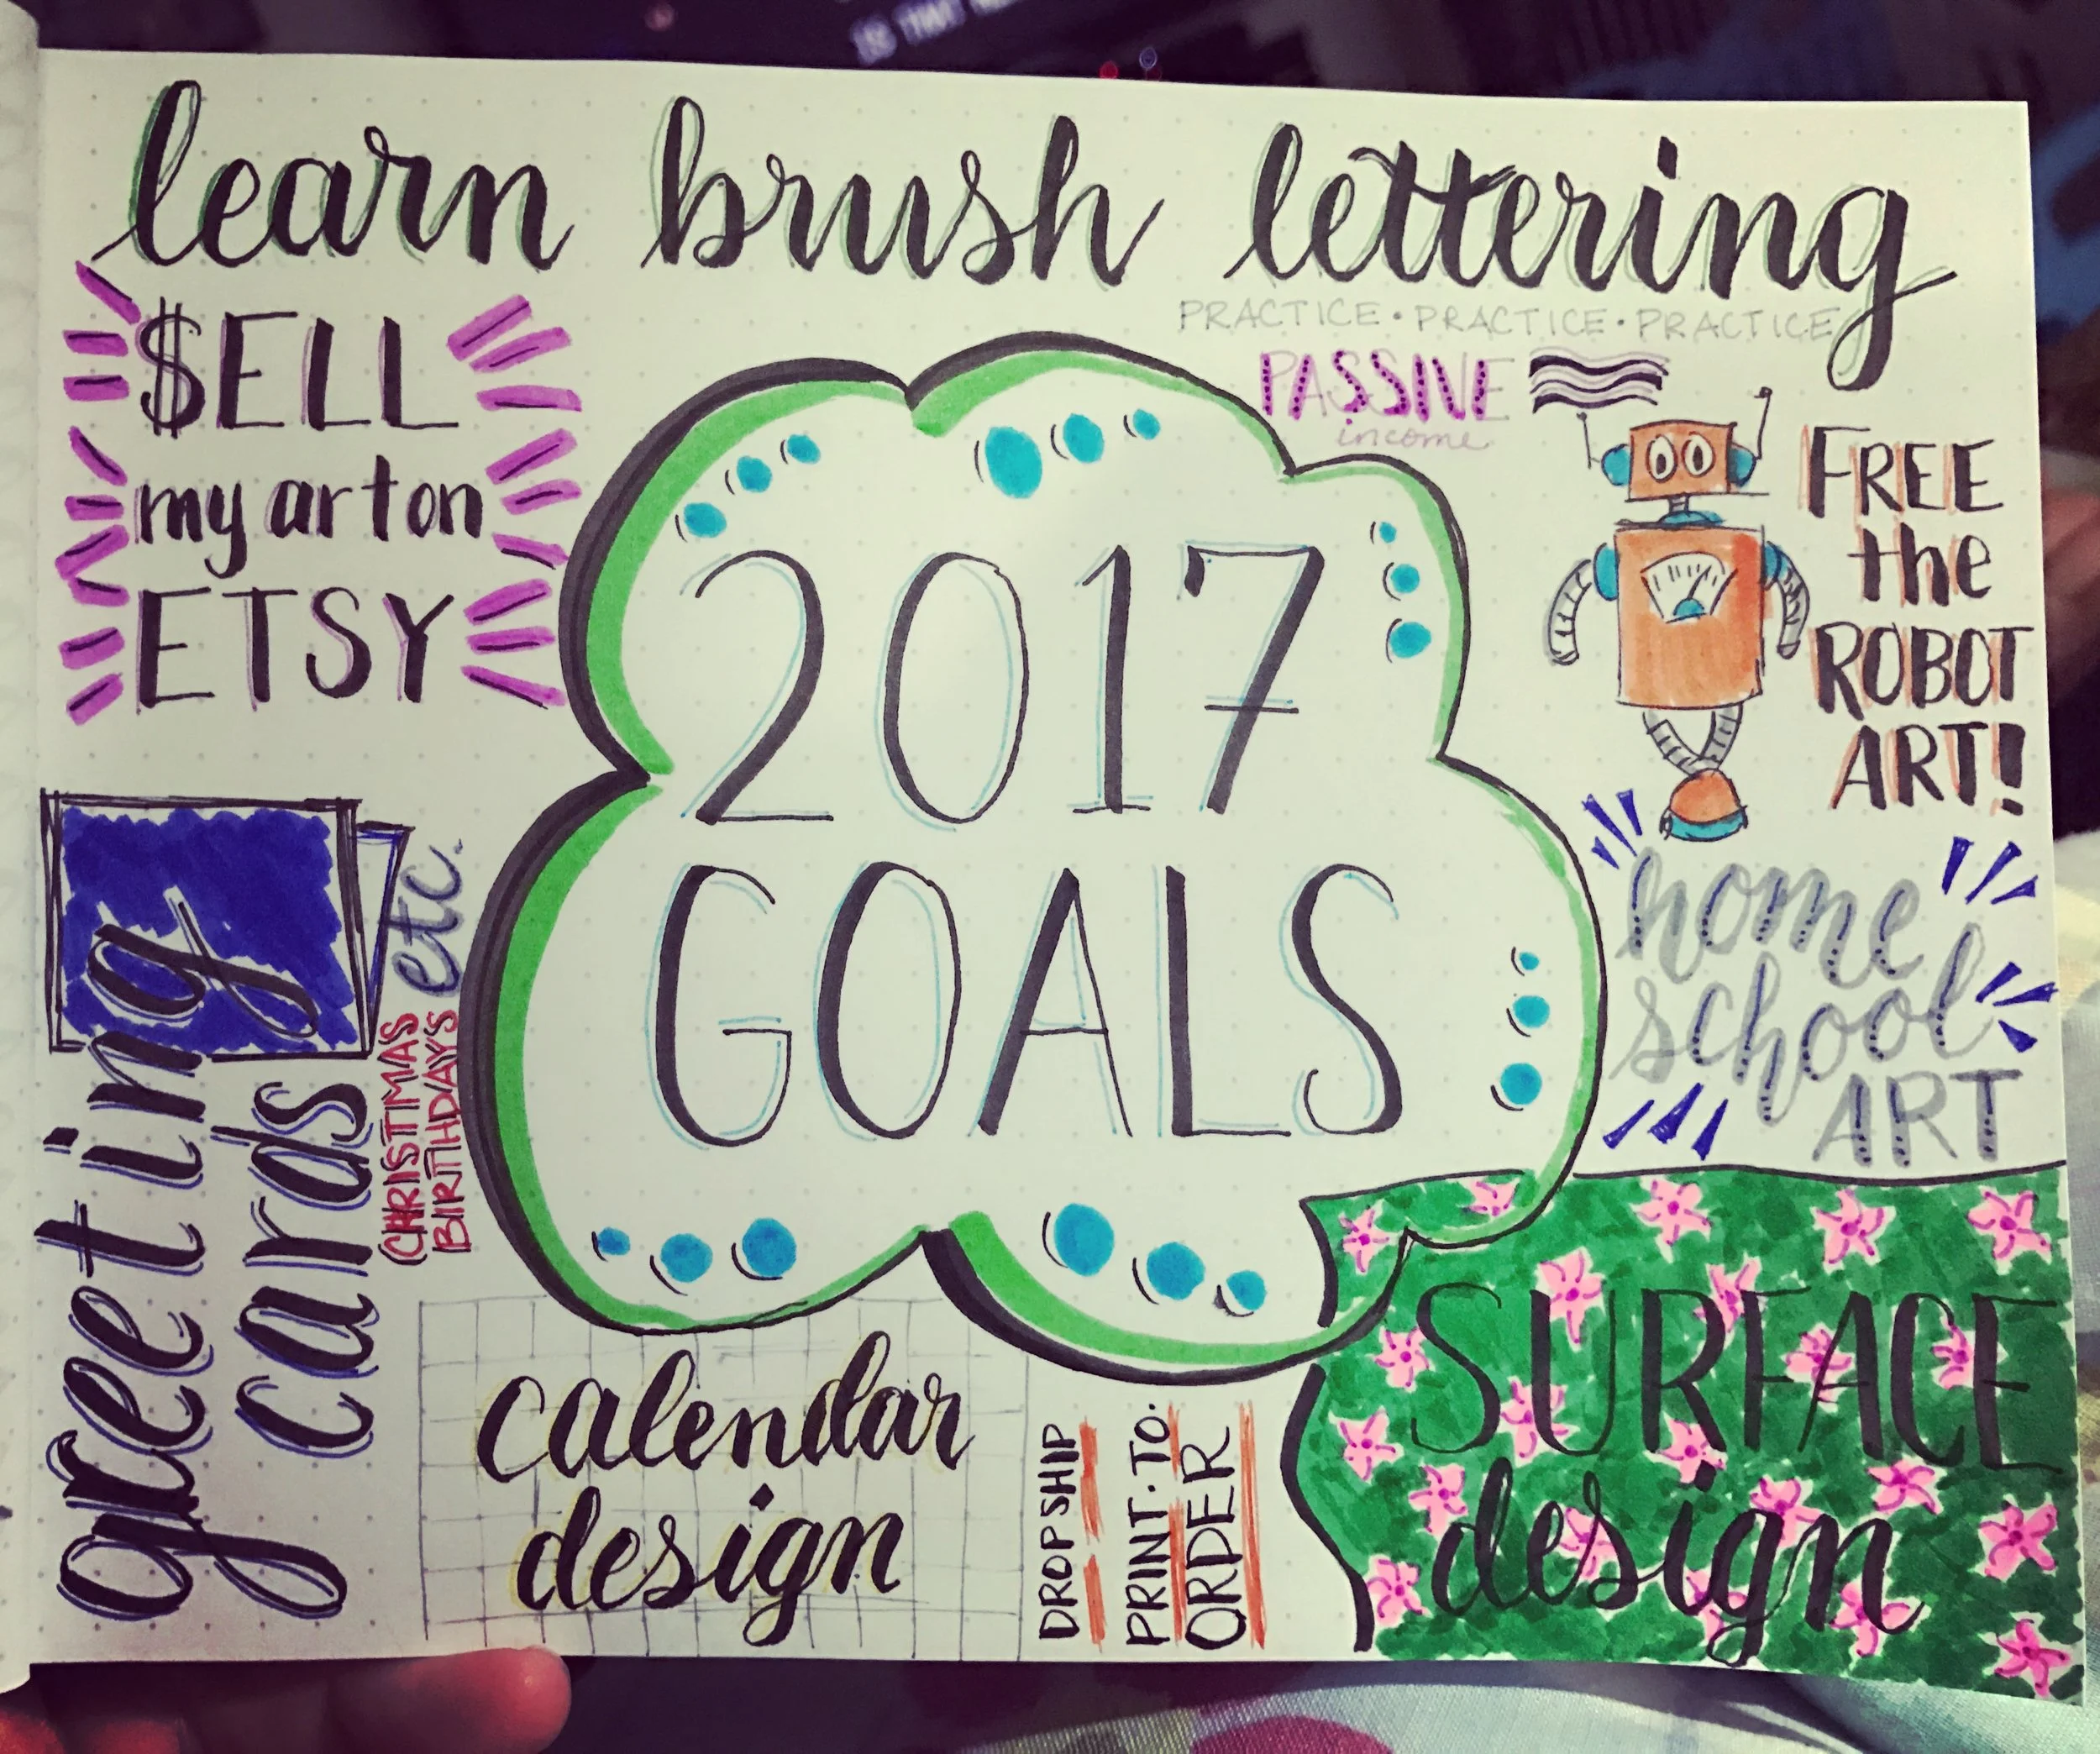 learn brush lettering
PRACTICE · PRACTICE · PRACTICE
$ELL
my art on
ETSY
PASSIVE
income
FREE
the
ROBOT
ART!
2017
GOALS
home
school
ART
greeting
cards
CHRISTMAS
BIRTHDAYS
etc.
calendar
design
DROPSHIP
PRINT·TO·
ORDER
SURFACE
design